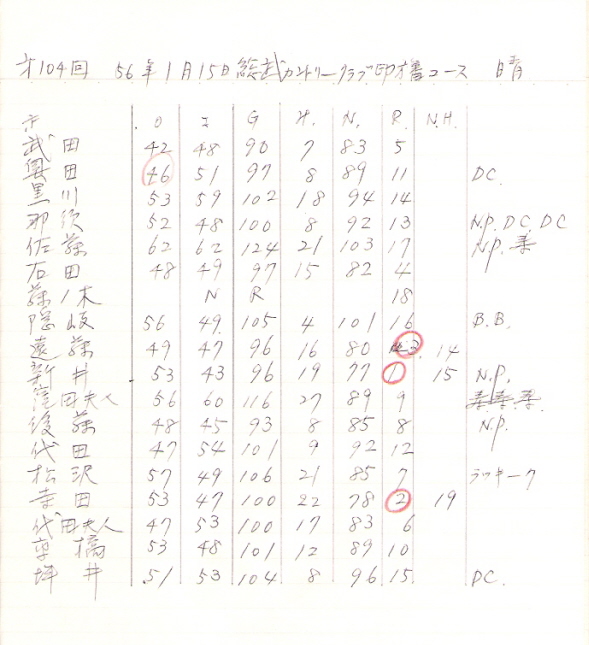 才104回 56年1月15日 総武カントリークラブ印旛コース 晴
O I G H. N. R. N.H.
武田 42 48 90 7 83 5
奥田 46 51 97 8 89 11 DC.
黒川 53 59 102 18 94 14
那須 52 48 100 8 92 13 N.P. DC. DC
佐藤 62 62 124 21 103 17 N.P.
石田 48 49 97 15 82 4
藤ノ木 N R 18
隠岐 56 49 105 4 101 16 B.B.
遠藤 49 47 96 16 80 3 14
新井 53 43 96 19 77 1 15 N.P.
窪田夫人 56 60 116 27 89 9
後藤 48 45 93 8 85 8 N.P.
代田 47 54 101 9 92 12
松沢 57 49 106 21 85 7 ラッキーク
寺田 53 47 100 22 78 2 19
代田夫人 47 53 100 17 83 6
53 48 101 12 89 10
坪井 51 53 104 8 96 15 DC.